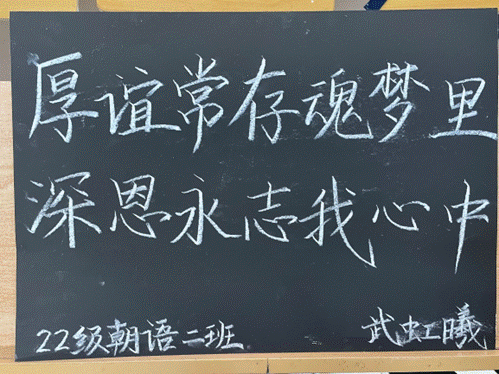 厚谊常存魂梦里
深恩永志我心中
22级朝语二班 武虹曦